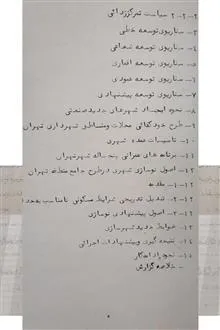 ۲-۲-۲ سیاست تمرکززدائی
۳- سناریوی توسعه خطی
۴- سناریوی توسعه شعاعی
۵- سناریوی توسعه اقماری
۶- سناریوی توسعه عمودی
۷- سناریوی توسعه پیشنهادی
۸- نحوه ایجاد شهرهای جدید صنعتی
۹- طرح خودکفائی محلات ومناطق شهرداری تهران
۱۰- تاسیسات عمده شهری
۱۱- برنامه های عمرانی پنجساله شهرتهران
۱۲- اصول نوسازی شهری درطرح جامع منطقه تهران
۱-۱۲- مقدمه
۲-۱۲- تبدیل تدریجی شرایط مسکونی نامناسب به
۳-۱۲- اصول پیشنهادی نوسازی
۱۳- ضوابط جدید شهرسازی
۱۴- نتیجه گیری وپیشنهادات اجرائی
۱۵- نحوه
- خلاصه گزارش